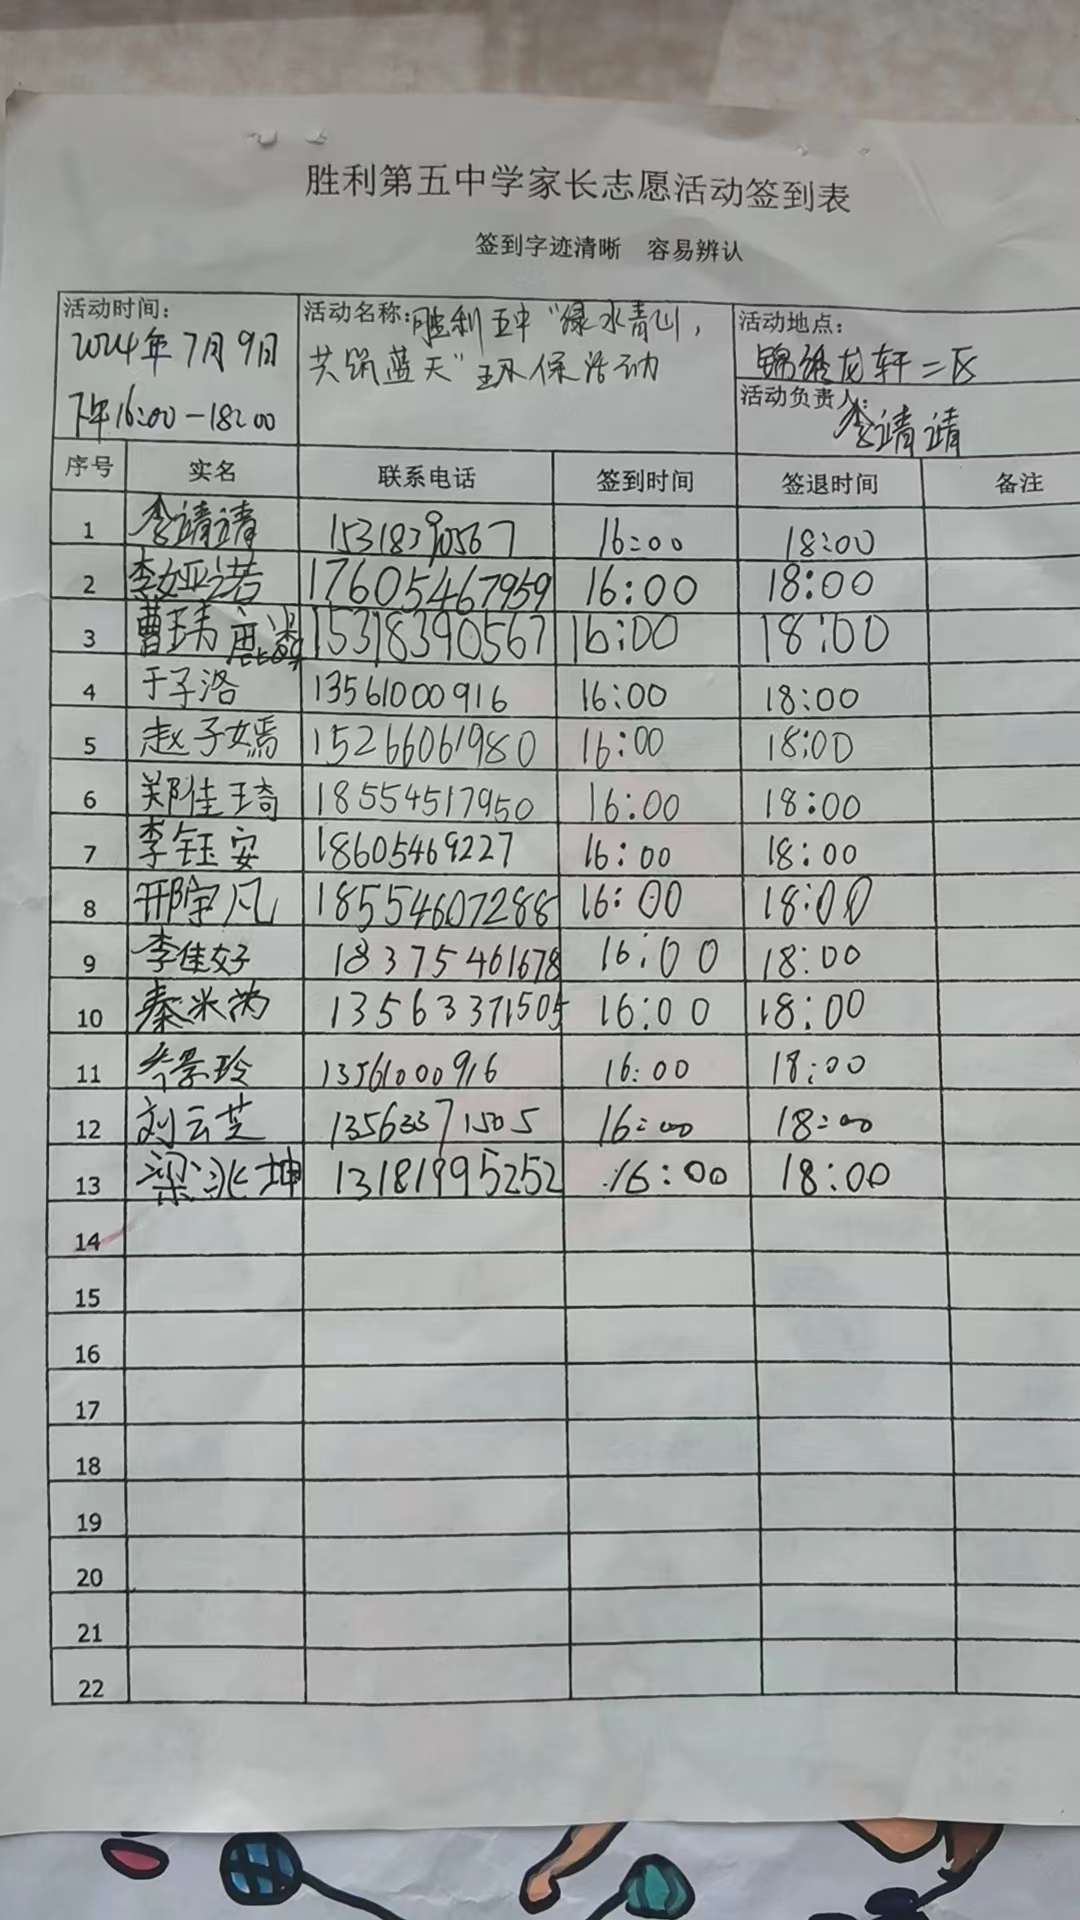 胜利第五中学家长志愿活动签到表
签到字迹清晰 容易辨认
活动时间:
2024年7月9日
下午16:00-18:00
活动名称:胜利五中"绿水青山,
共筑蓝天"环保活动
活动地点:
锦绣龙轩二区
活动负责人:
李靖靖
序号 实名 联系电话 签到时间 签退时间 备注
1 李靖靖 15318390567 16:00 18:00
2 李娅诺 17605467959 16:00 18:00
3 曹玮 15318390567 16:00 18:00
4 于子洛 13561000916 16:00 18:00
5 赵子嫣 15266061980 16:00 18:00
6 郑佳琦 18554517950 16:00 18:00
7 李钰安 18605469227 16:00 18:00
8 邢宇凡 18554607288 16:00 18:00
9 李佳好 18375461678 16:00 18:00
10 秦 13563371505 16:00 18:00
11 景玲 13561000916 16:00 18:00
12 刘云芝 13563371505 16:00 18:00
13 梁泳坤 13181995252 16:00 18:00
14
15
16
17
18
19
20
21
22